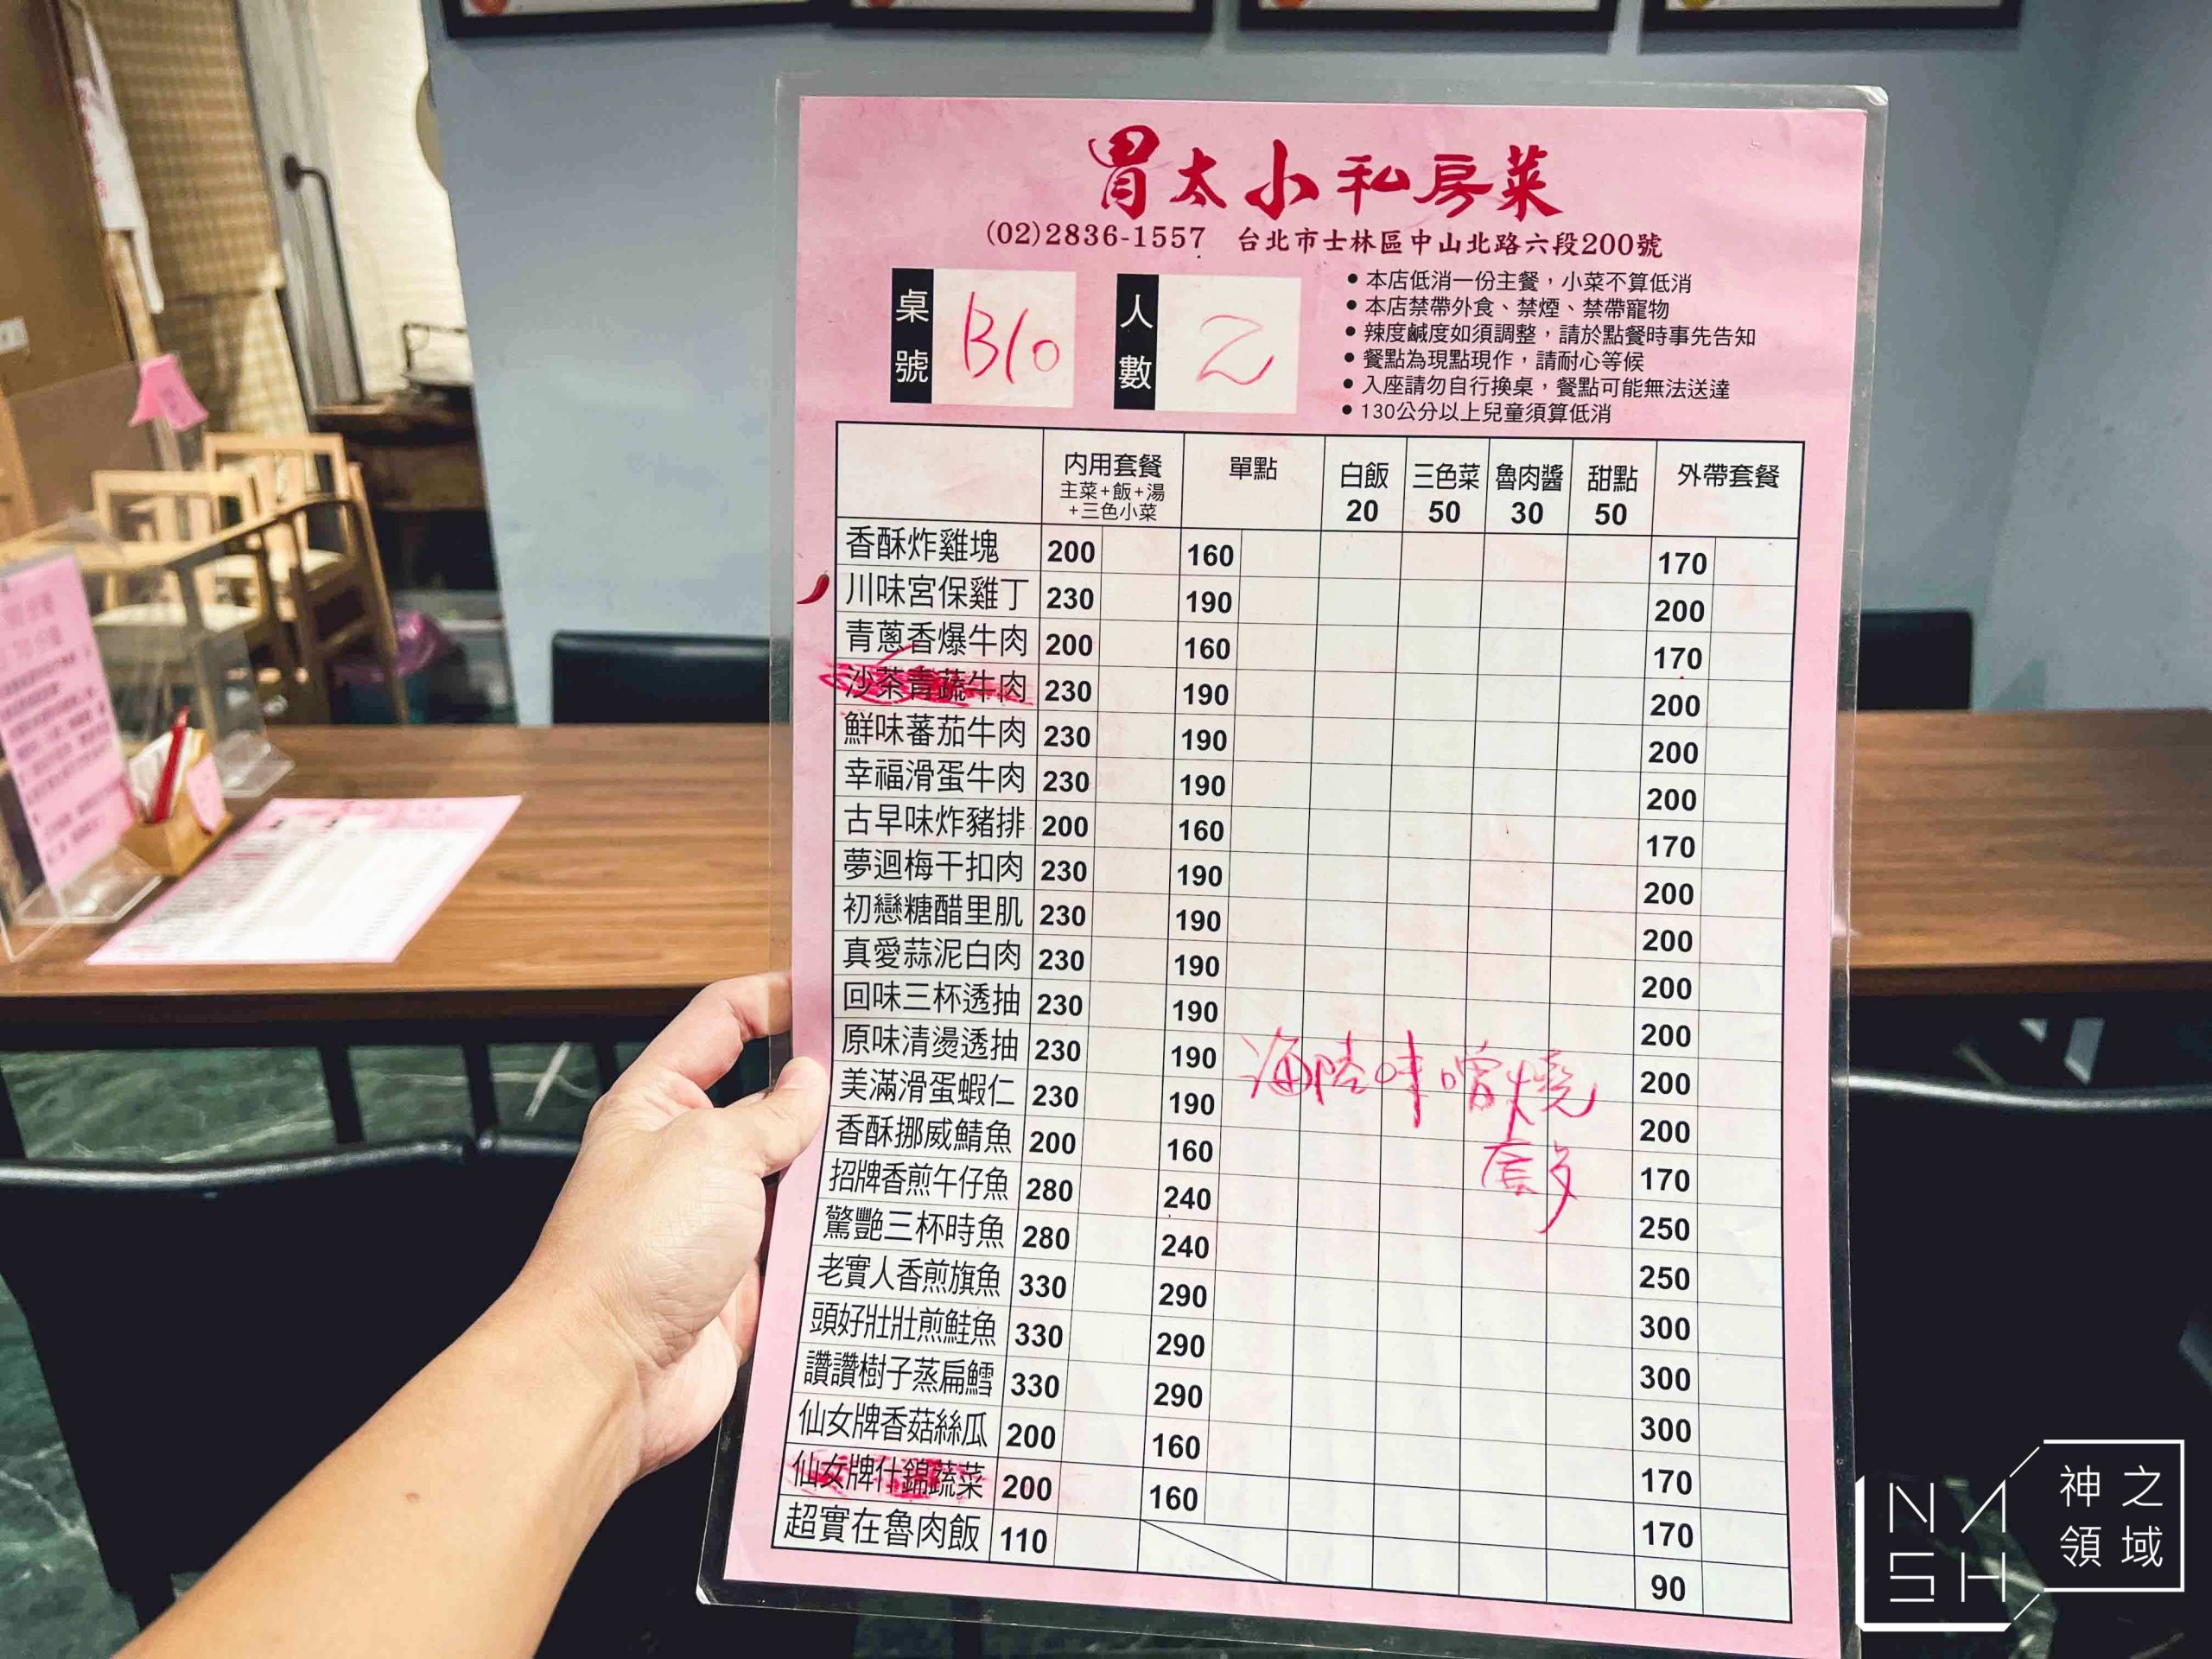 胃太小私房菜
(02)2836-1557 台北市士林區中山北路六段200號
桌號 B10 人數 2
●本店低消一份主餐，小菜不算低消
●本店禁帶外食、禁煙、禁帶寵物
●辣度鹹度如須調整，請於點餐時事先告知
●餐點為現點現作，請耐心等候
●入座請勿自行換桌，餐點可能無法送達
●130公分以上兒童須算低消
内用套餐 單點 白飯 三色菜 魯肉醬 甜點 外帶套餐
主菜+飯+湯
+三色小菜 20 50 30 50
香酥炸雞塊 200 160 170
川味宮保雞丁 230 190 200
青蔥香爆牛肉 200 160 170
沙茶青蔬牛肉 230 190 200
鮮味蕃茄牛肉 230 190 200
幸福滑蛋牛肉 230 190 200
古早味炸豬排 200 160 170
夢迴梅干扣肉 230 190 200
初戀糖醋里肌 230 190 200
真愛蒜泥白肉 230 190 200
回味三杯透抽 230 190 200
原味清燙透抽 230 190 200
美滿滑蛋蝦仁 230 190 200
香酥挪威鯖魚 200 160 170
招牌香煎午仔魚 280 240 250
驚艷三杯時魚 280 240 250
老實人香煎旗魚 330 290 300
頭好壯壯煎鮭魚 330 290 300
讚讚樹子蒸扁鱈 330 290 300
仙女牌香菇絲瓜 200 160 170
仙女牌什錦蔬菜 200 160 170
超實在魯肉飯 110 90
海陸味噌燒
NASH
神之領域